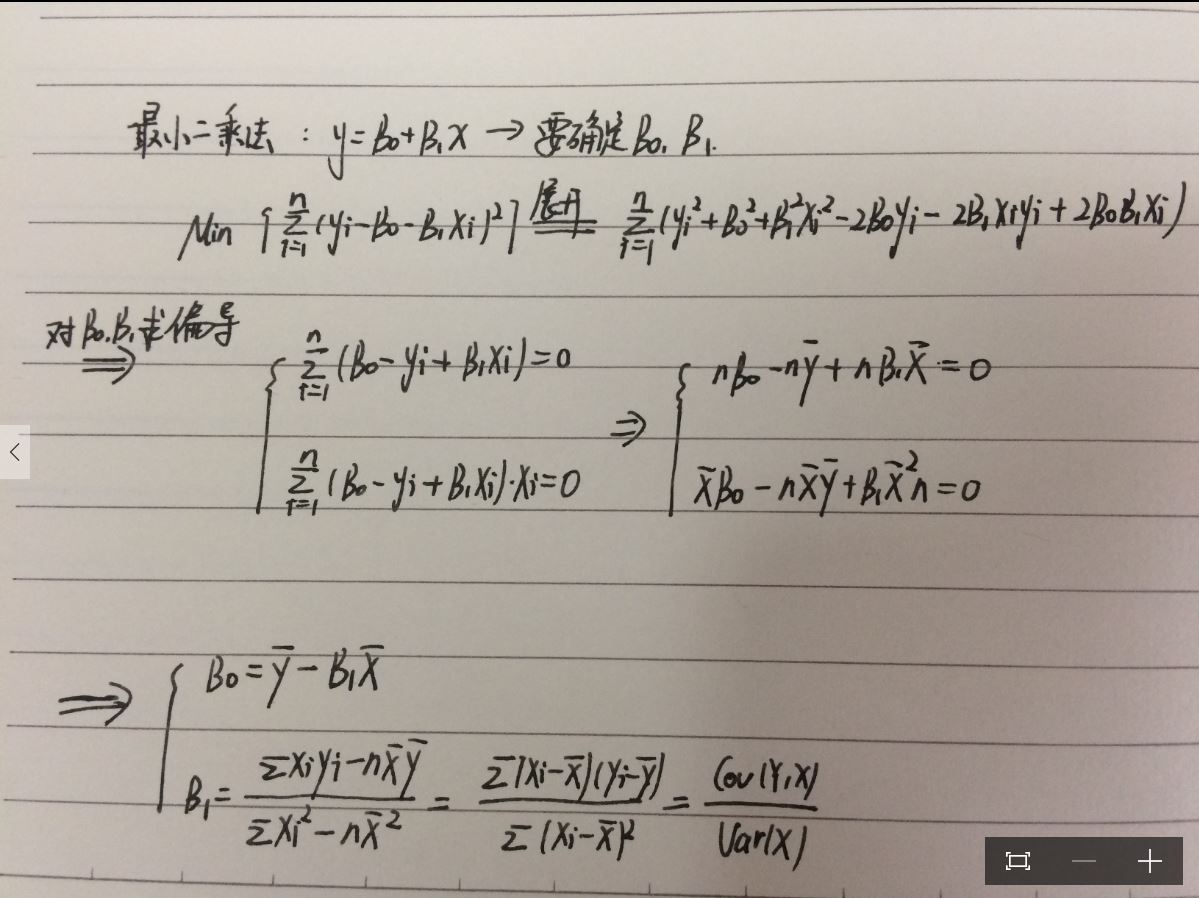 最小二乘法 : y=B₀+B₁x → 要确定B₀, B₁.
Min {∑ᵢ₌₁ⁿ(yᵢ-B₀-B₁xᵢ)²} 展开== ∑ᵢ₌₁ⁿ(yᵢ²+B₀²+B₁²xᵢ²-2B₀yᵢ-2B₁xᵢyᵢ+2B₀B₁xᵢ)
对B₀.B₁求偏导
⇒ { ∑ᵢ₌₁ⁿ(B₀-yᵢ+B₁xᵢ)=0 ⇒ { nB₀-nȳ+nB₁x̄=0
∑ᵢ₌₁ⁿ(B₀-yᵢ+B₁xᵢ)·xᵢ=0 x̄B₀-nx̄ȳ+B₁x̄²n=0
⇒ { B₀=ȳ-B₁x̄
B₁= (∑xᵢyᵢ-nx̄ȳ)/(∑xᵢ²-nx̄²) = ∑(xᵢ-x̄)(yᵢ-ȳ)/∑(xᵢ-x̄)² = Cov(Y,X)/Var(X)